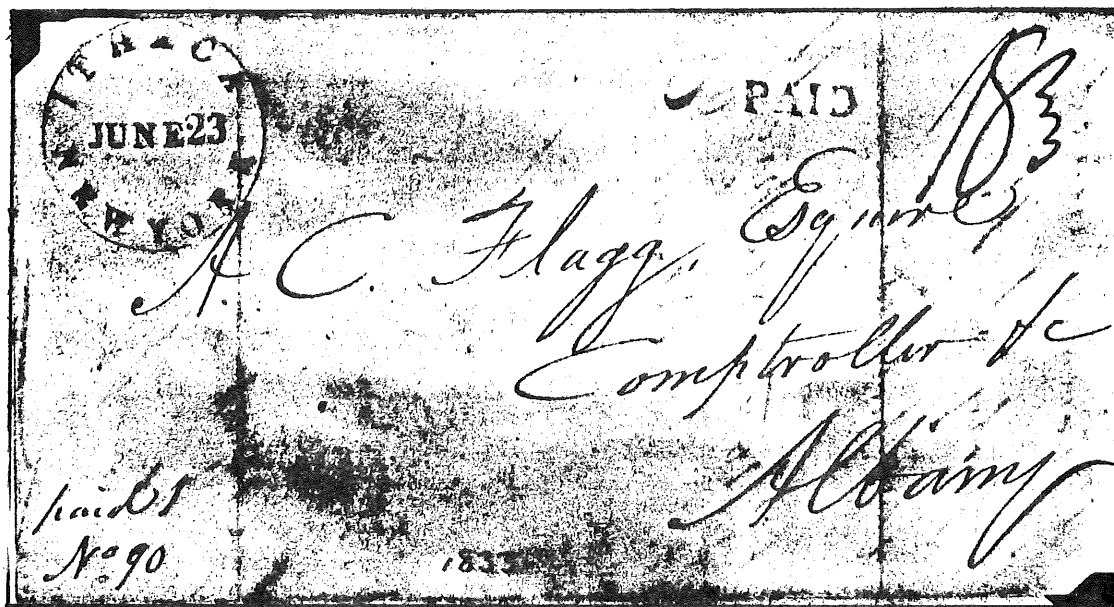 ITHACA
JUNE 23
NEW YORK
PAID
18¾
A. C. Flagg, Esquire,
Comptroller &c
Albany
paid
No 90
1833